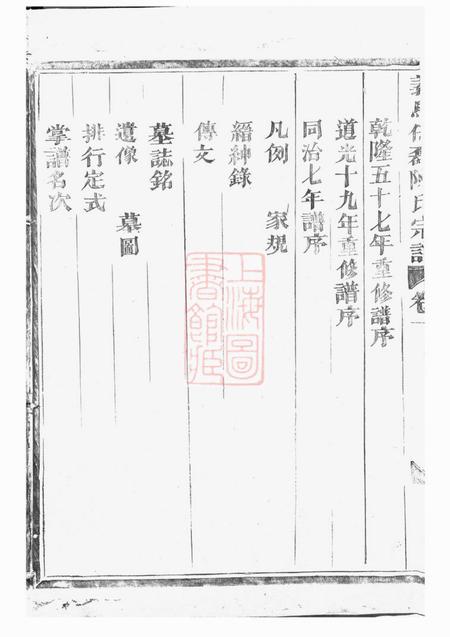 陳氏宗譜
乾隆五十七年重修譜序
道光十九年重修譜序
同治七年譜序
凡例 家規
縉紳錄
傳文
墓誌銘
遺像 墓圖
排行定式
掌譜名次
上海圖書館藏